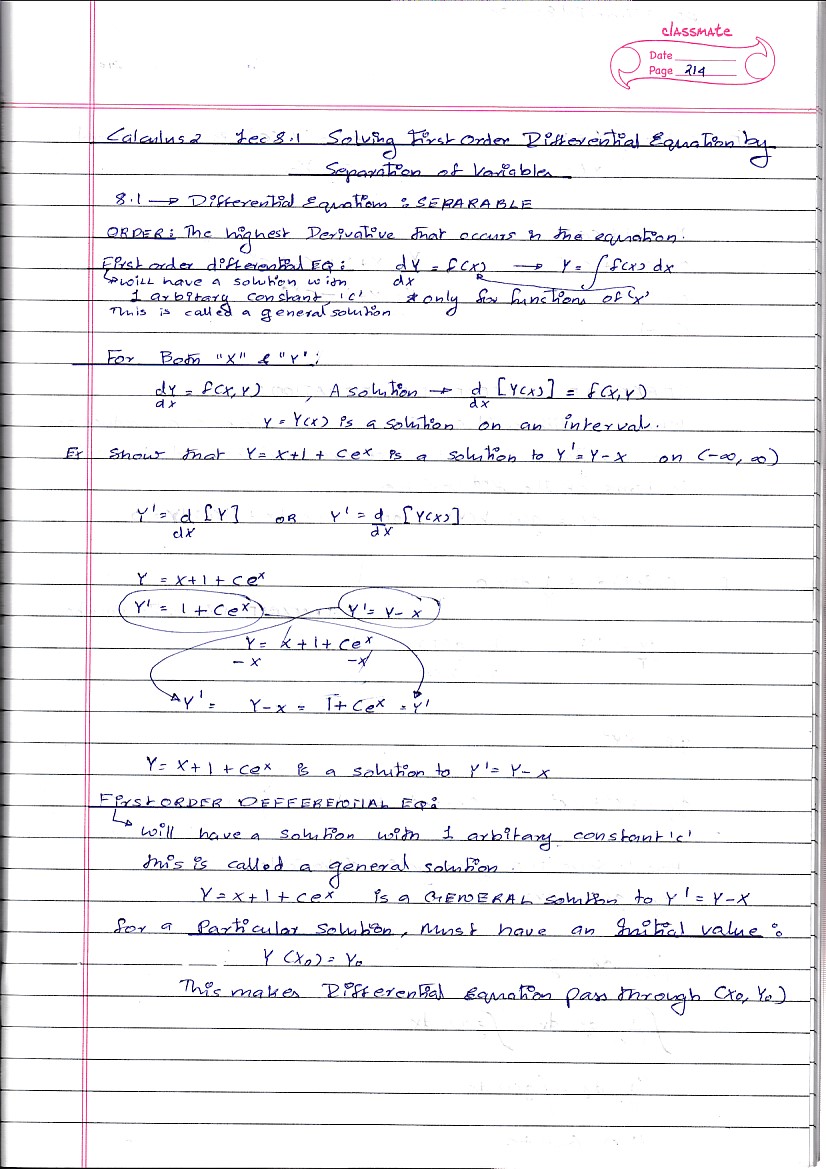 classmate
Date
Page 214
Calculus 2 Lec 8.1 Solving First Order Differential Equation by
Separation of Variables
8.1 → Differential Equation : SEPARABLE
ORDER: The highest Derivative that occurs in the equation.
First order differential EQ : dY/dx = f(x) → Y = ∫ f(x) dx
↳ will have a solution with
1 arbitary constant 'c' * only for functions of 'x'
This is called a general solution
For Both "X" & "Y" :
dY/dx = f(X,Y) , A solution → d/dx [Y(X)] = f(X,Y)
Y = Y(X) is a solution on an interval.
Ex Show that Y = X+1 + Ce^x is a solution to Y' = Y-X on (-∞, ∞)
Y' = d/dX [Y] OR Y' = d/dX [Y(X)]
Y = X+1 + Ce^x
Y' = 1 + Ce^x Y' = Y - X
Y = X + 1 + Ce^x
- X -X
Y' = Y-X = 1 + Ce^x = Y'
Y = X + 1 + Ce^x is a solution to Y' = Y - X
First ORDER DEFFERENTIAL EQ :
↳ will have a solution with 1 arbitary constant 'c'
this is called a general solution.
Y = X + 1 + Ce^x is a GENERAL solution to Y' = Y-X
for a Particular Solution, Must have an Initial value :
Y (X₀) = Y₀
This makes Differential Equation pass through (X₀, Y₀)